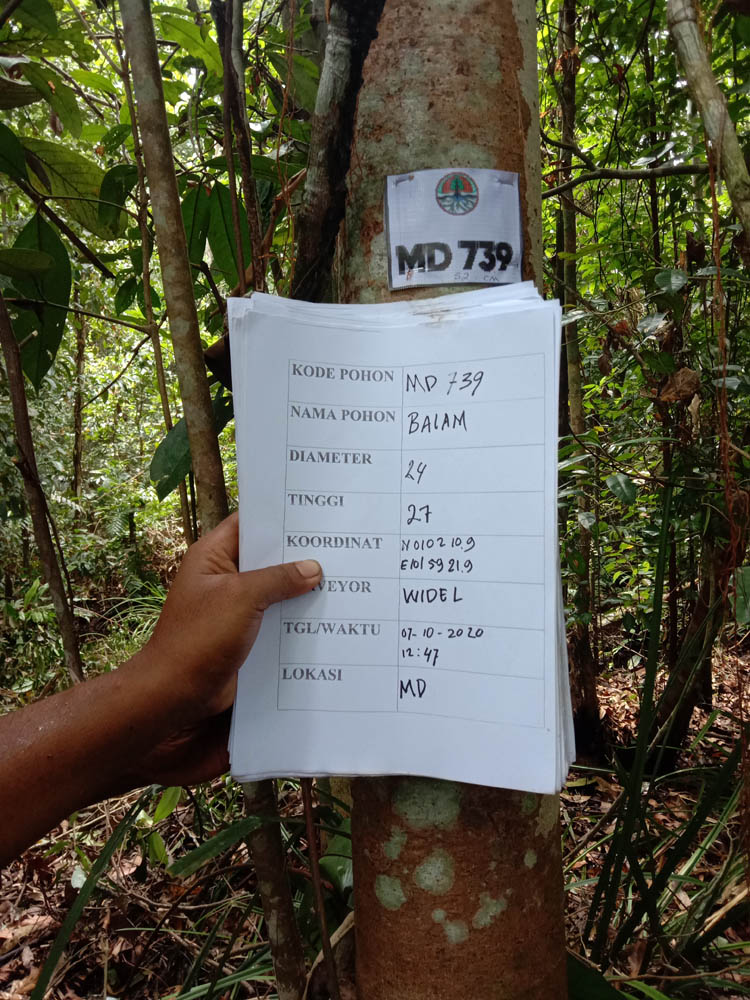 MD 739
52 cm
KODE POHON MD 739
NAMA POHON BALAM
DIAMETER 24
TINGGI 27
KOORDINAT N 01 02 10.9
E 101 59 21.9
VEYOR WIDEL
TGL/WAKTU 07-10-2020
12:47
LOKASI MD